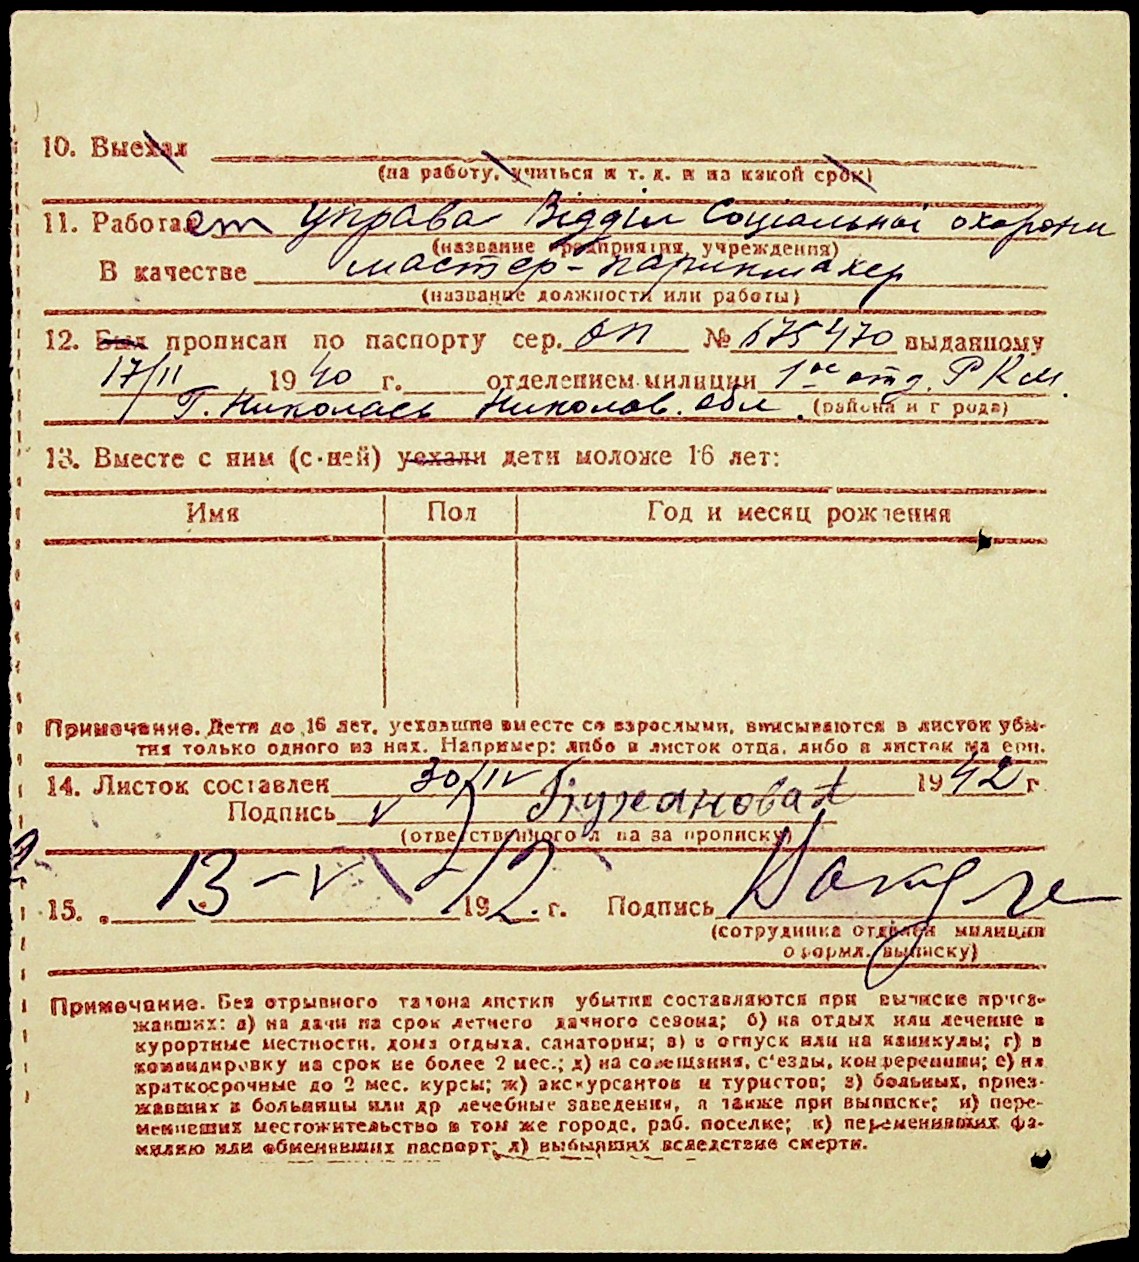 10. Выехал
(на работу, учиться и т. д. и на какой срок)
11. Работает Управа Відділ Соціальної охорони
(название предприятия, учреждения)
В качестве мастер-парикмахер
(название должности или работы)
12. Был прописан по паспорту сер. ОП № 675470 выданному
17/II 1940 г. отделением милиции 1ое отд. РКМ.
Г. Николаевь Николов. обл. (района и города)
13. Вместе с ним (с ней) уехали дети моложе 16 лет:
Имя Пол Год и месяц рождения
Примечание. Дети до 16 лет, уехавшие вместе со взрослыми, вписываются в листок убы-
тия только одного из них. Например: либо в листок отца, либо в листок матери.
14. Листок составлен 30/IV 1942 г
Подпись v
(ответственного лица за прописку)
15. 13-V 1942 г. Подпись
(сотрудника отделен милиции
оформл. выписку)
Примечание. Без отрывного талона листки убытия составляются при выписке приез-
жавших: а) на дачи на срок летнего дачного сезона; б) на отдых или лечение в
курортные местности, дома отдыха, санатории; в) в отпуск или на каникулы; г) в
командировку на срок не более 2 мес.; д) на совещания, с'езды, конференции; е) на
краткосрочные до 2 мес. курсы; ж) экскурсантов и туристов; з) больных, приез-
жавших в больницы или др лечебные заведения, а также при выписке; и) пере-
менивших местожительство в том же городе, раб. поселке; к) переменивших фа-
милию или обменявших паспорт; л) выбывших вследствие смерти.